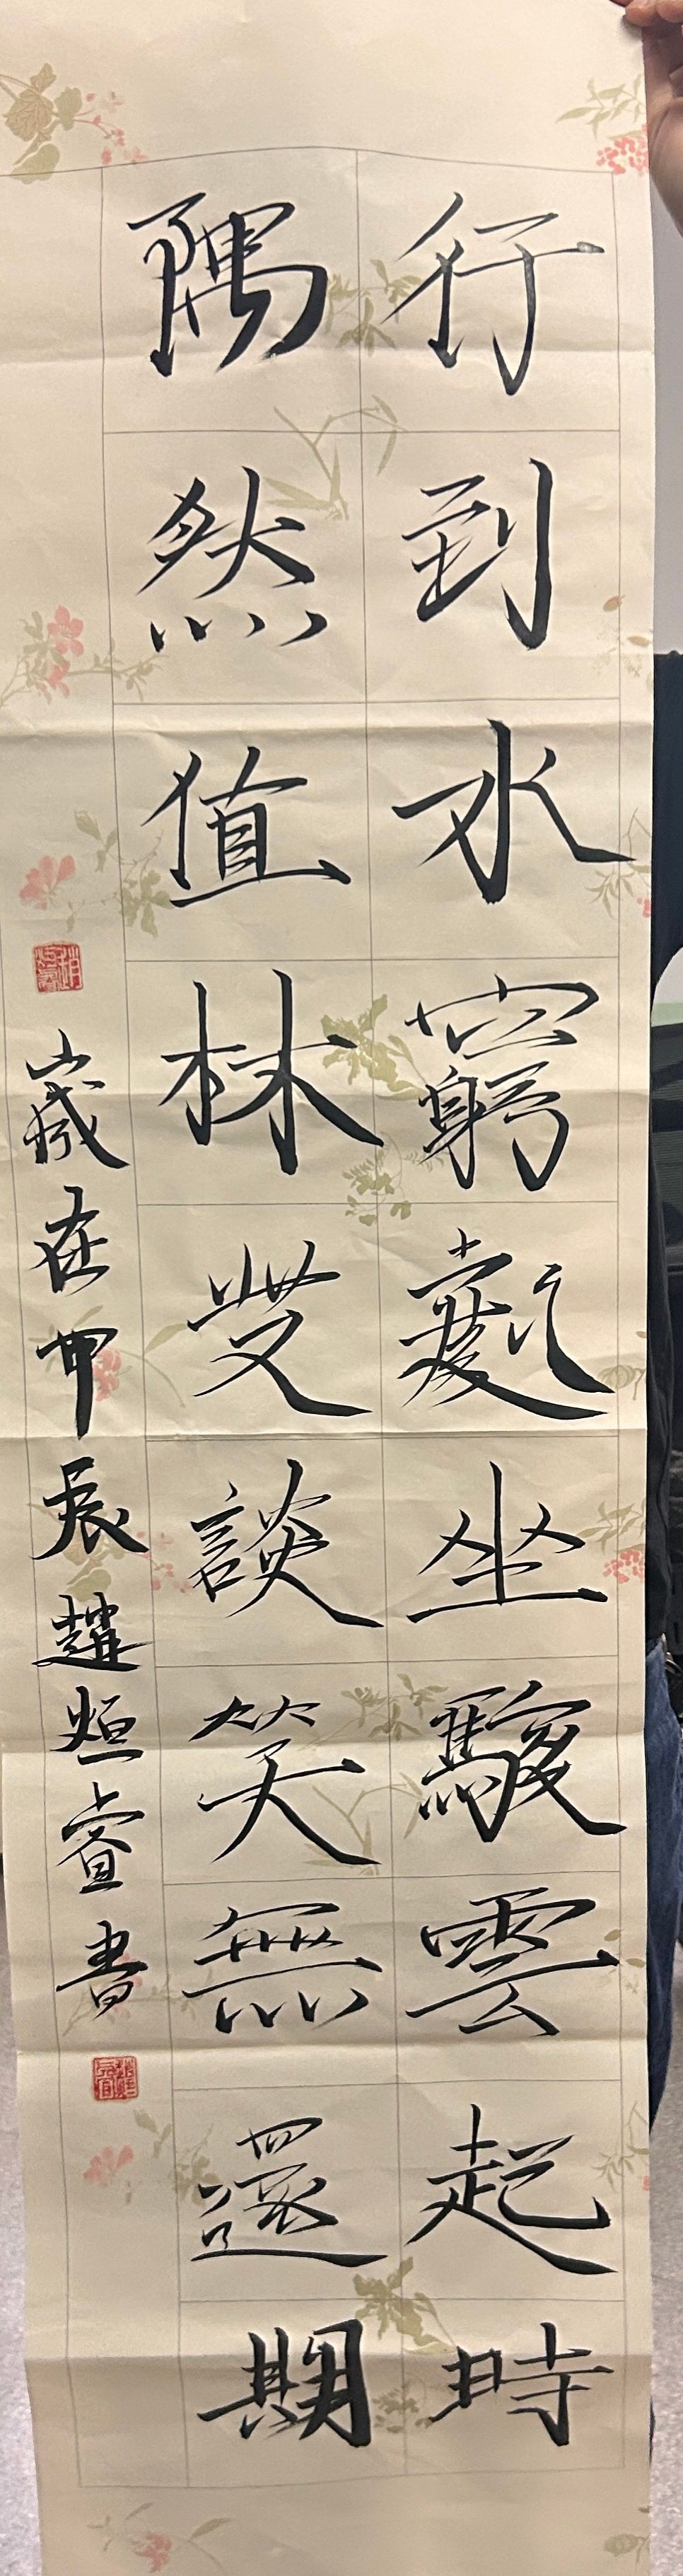 行到水窮處坐駿雲起時
隅然值林叟談笑無還期
歲在甲辰趙烜睿書